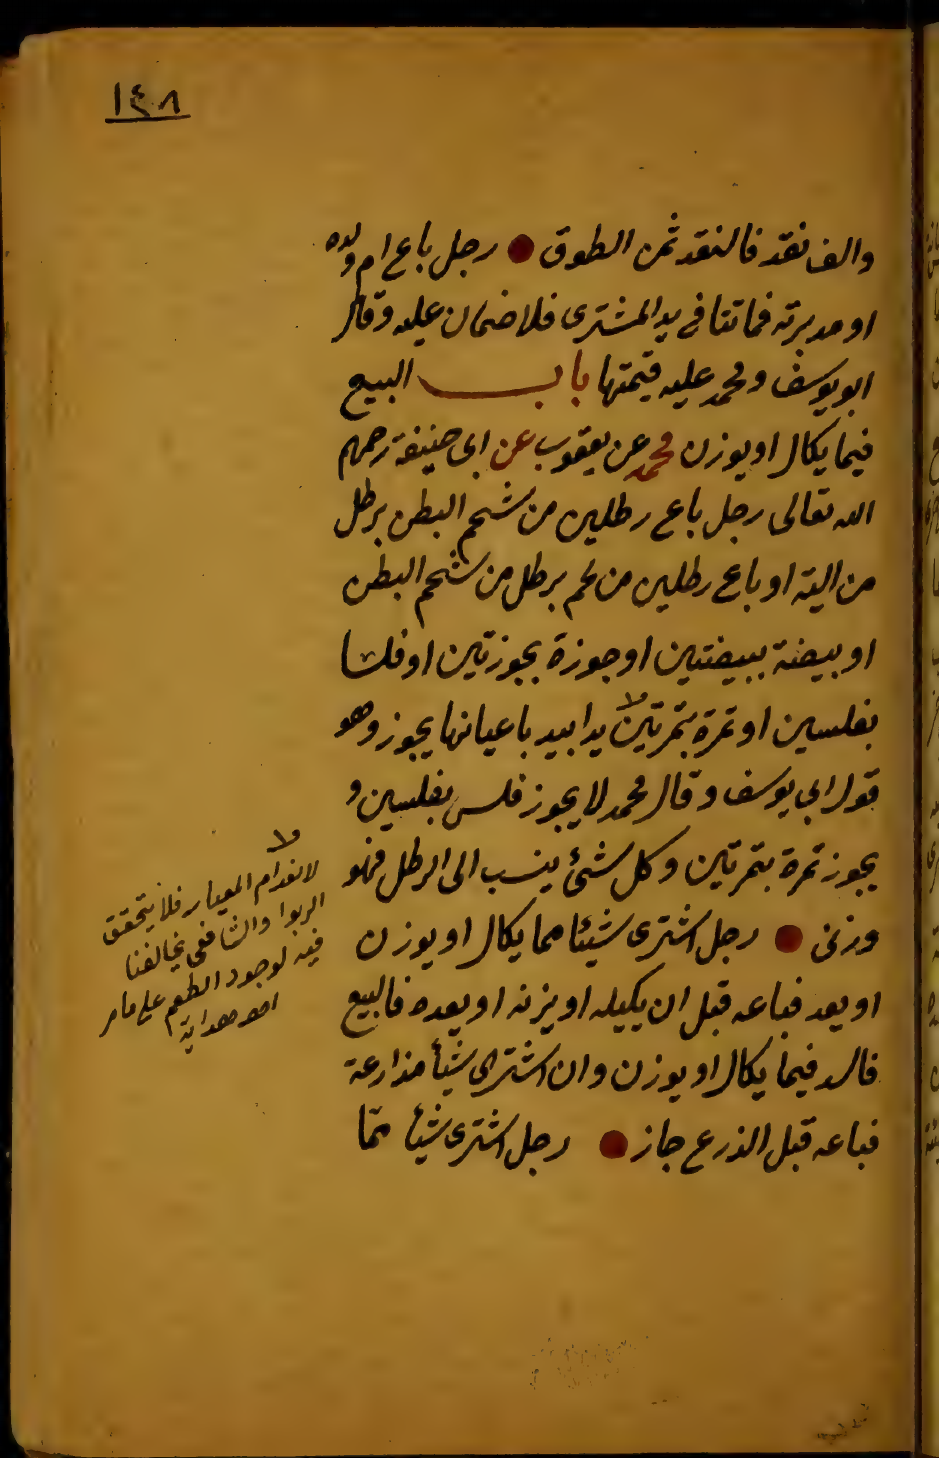 ١٤٨
والف نقد فالنقد ثمن الطوق ● رجل باع ام ولده
او مدبرته فماتتا في يد المشترى فلا ضمان عليه وقال
ابو يوسف ومحمد عليه قيمتها باب البيع
فيما يكال او يوزن محمد عن يعقوب عن ابى حنيفة رحمهم
الله تعالى رجل باع رطلين من شحم البطن برطل
من الية او باع رطلين من لحم برطل من شحم البطن
او بيضة ببيضتين او جوزة بجوزتين او فلسا
بفلسين او تمرة بتمرتين يدا بيد باعيانها يجوز وهو
قول ابى يوسف وقال محمد لا يجوز فلس بفلسين و
يجوز تمرة بتمرتين وكل شئ ينسب الى الرطل فهو
وزنى ● رجل اشترى شيئا مما يكال او يوزن
او يعد فباعه قبل ان يكيله او يزنه او يعده فالبيع
فاسد فيما يكال او يوزن وان اشترى شيأ مذارعة
فباعه قبل الذرع جاز ● رجل اشترى شيأ مما
لانعدام المعيار فلا يتحقق
الربوا والشافعى يخالفنا
فيه لوجود الطعم على مامر
اهو هداية